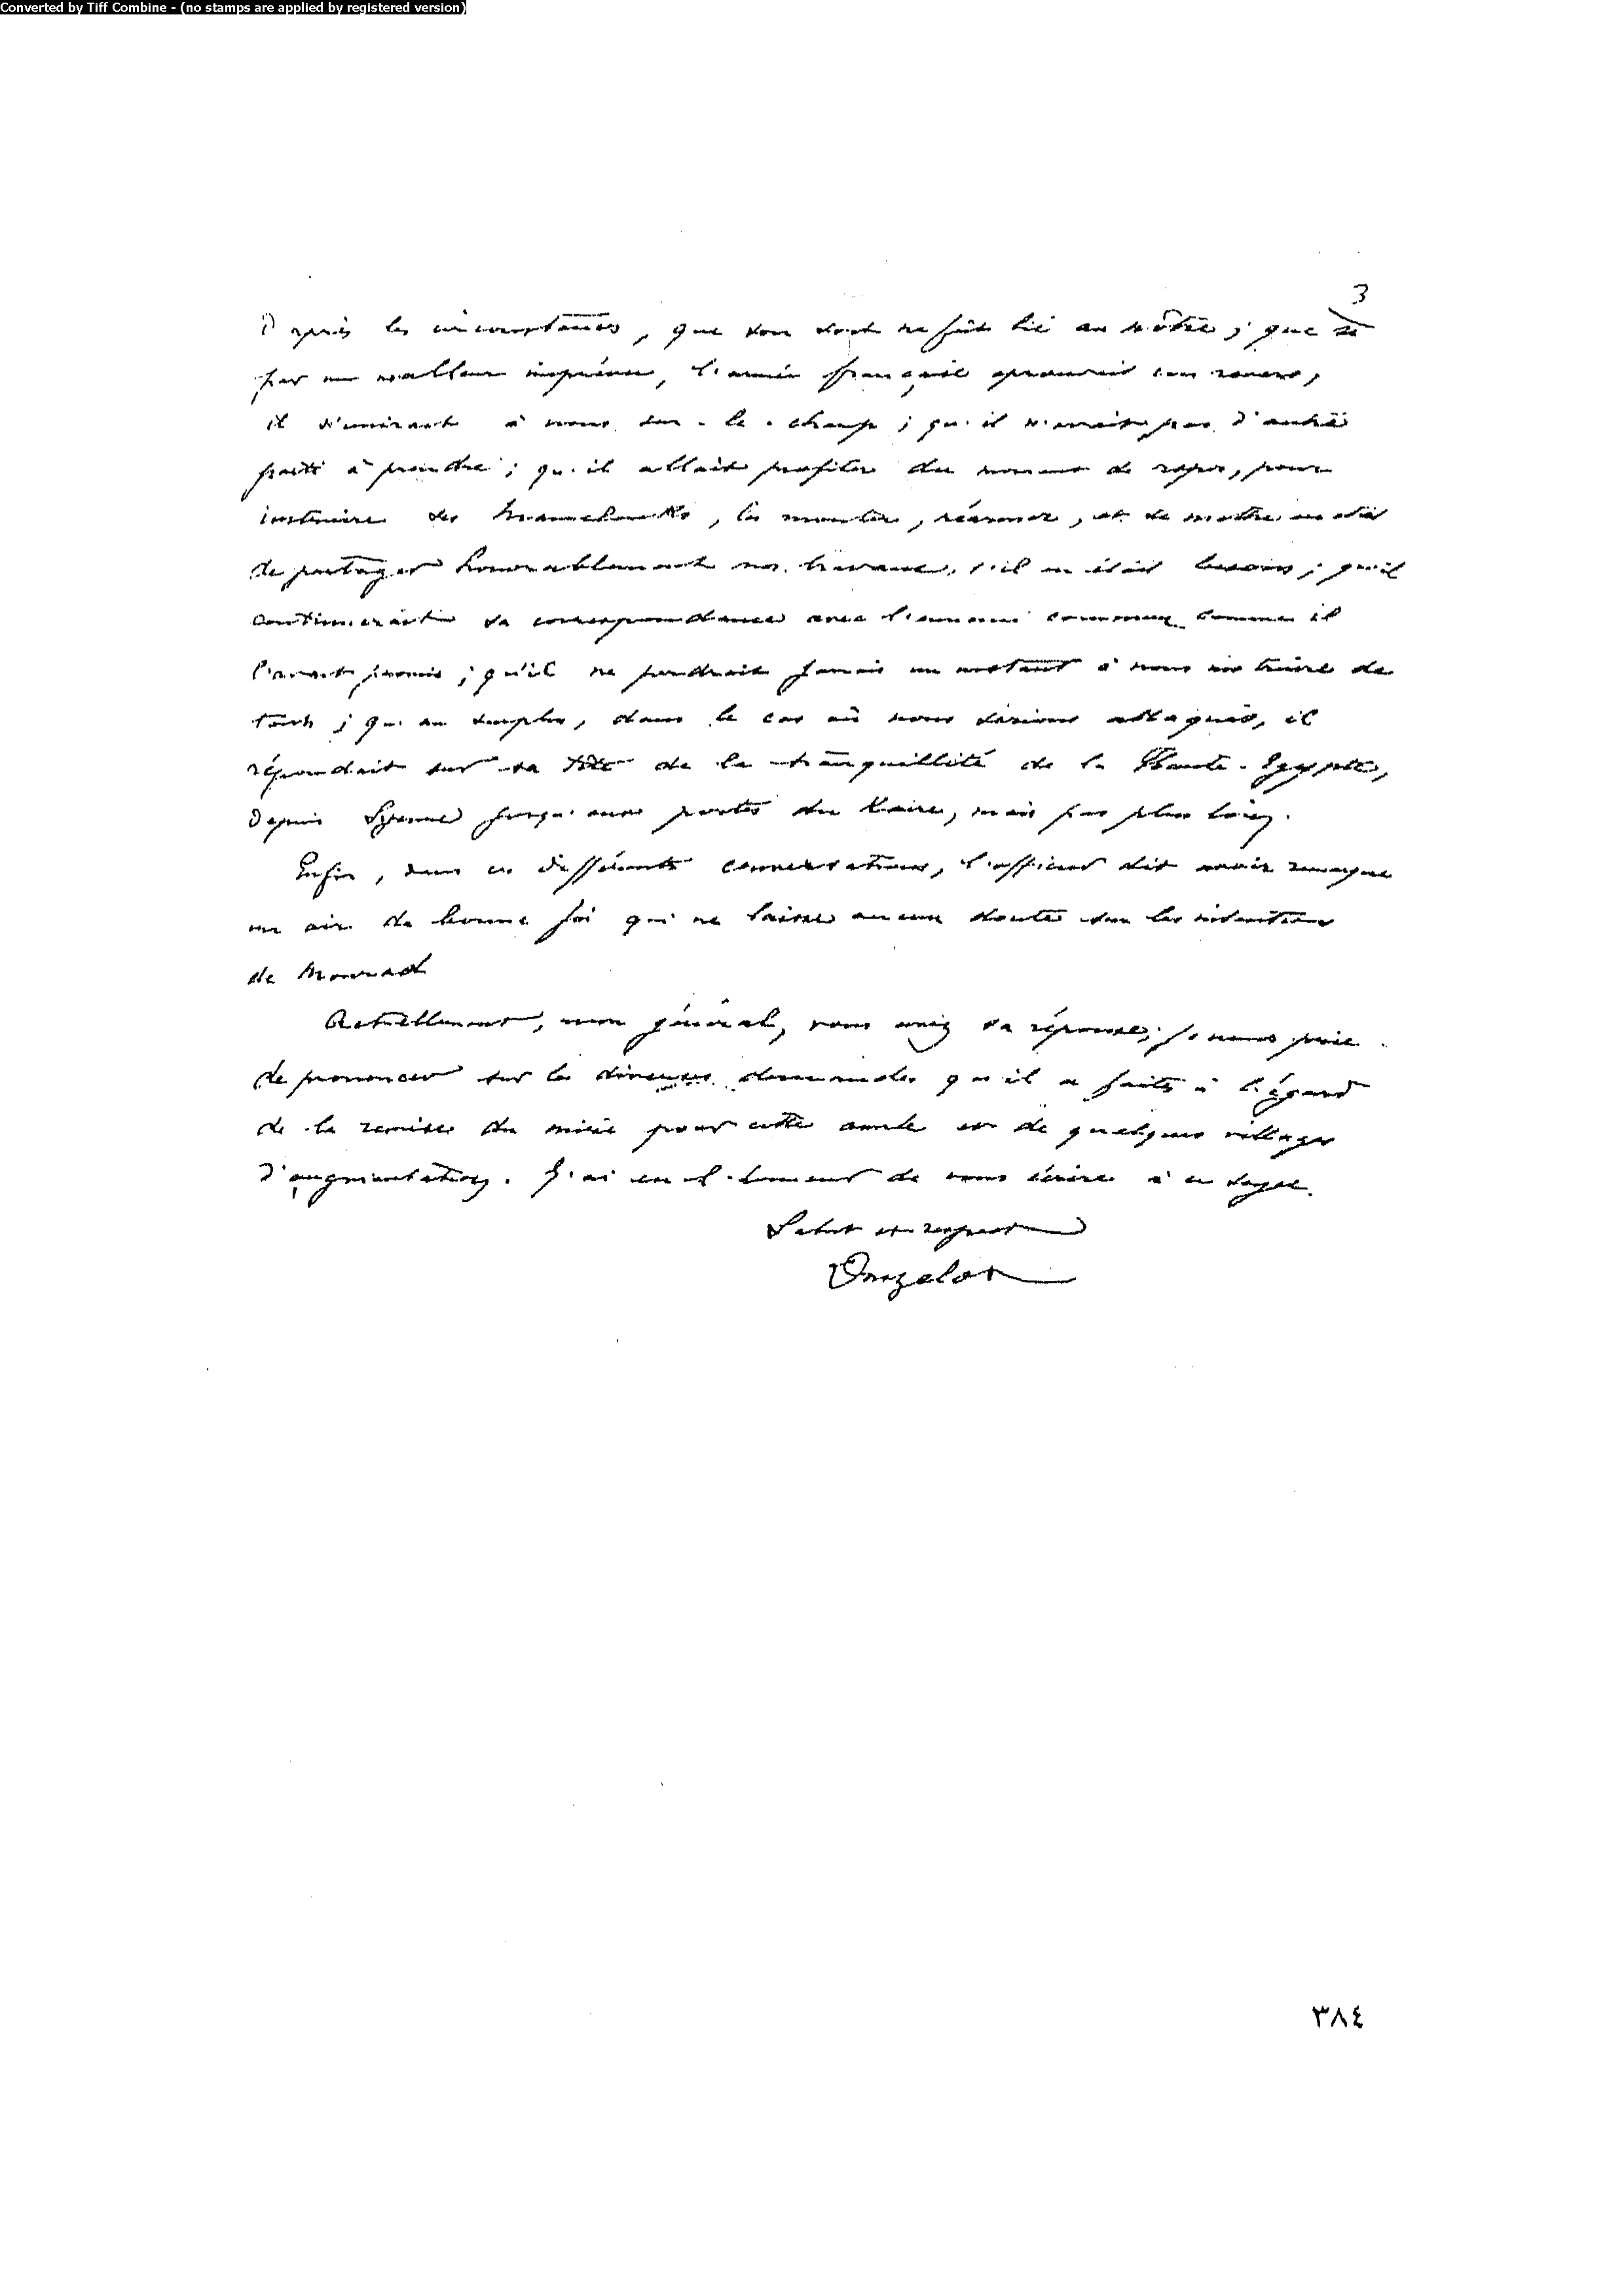 Converted by Tiff Combine - (no stamps are applied by registered version)
3
D'après les circonstances, que son sort ne fût lié au nôtre ; que si
par un malheur imprévu, l'armée française éprouvait un revers,
il s'unirait à nous sur-le-champ ; qu'il n'avait pas d'autre
parti à prendre ; qu'il allait profiter du moment de repos, pour
instruire des Mamelouks, les monter, réarmer, et se mettre en état
de partager honorablement nos travaux, s'il en était besoin ; qu'il
continuerait sa correspondance avec l'ennemi commun comme il
l'avait promis ; qu'il ne perdrait jamais un instant à nous instruire de
tout ; qu'au surplus, dans le cas où nous serions attaqués, il
répondait sur sa tête de la tranquillité de la Haute-Egypte,
depuis Syenne jusqu'aux portes du Caire, mais pas plus loin.
Enfin, dans ces différentes conversations, l'officier dit avoir remarqué
un air de bonne foi qui ne laisse aucun doute sur les intentions
de Mourad
Actuellement, mon général, vous avez sa réponse ; je vous prie
de prononcer sur les diverses demandes qu'il a faites à l'égard
de la remise du miri pour cette année et de quelques villages
d'augmentation. J'ai eu l'honneur de vous écrire à ce sujet.
Salut et respect
Donzelot
٣٨٤